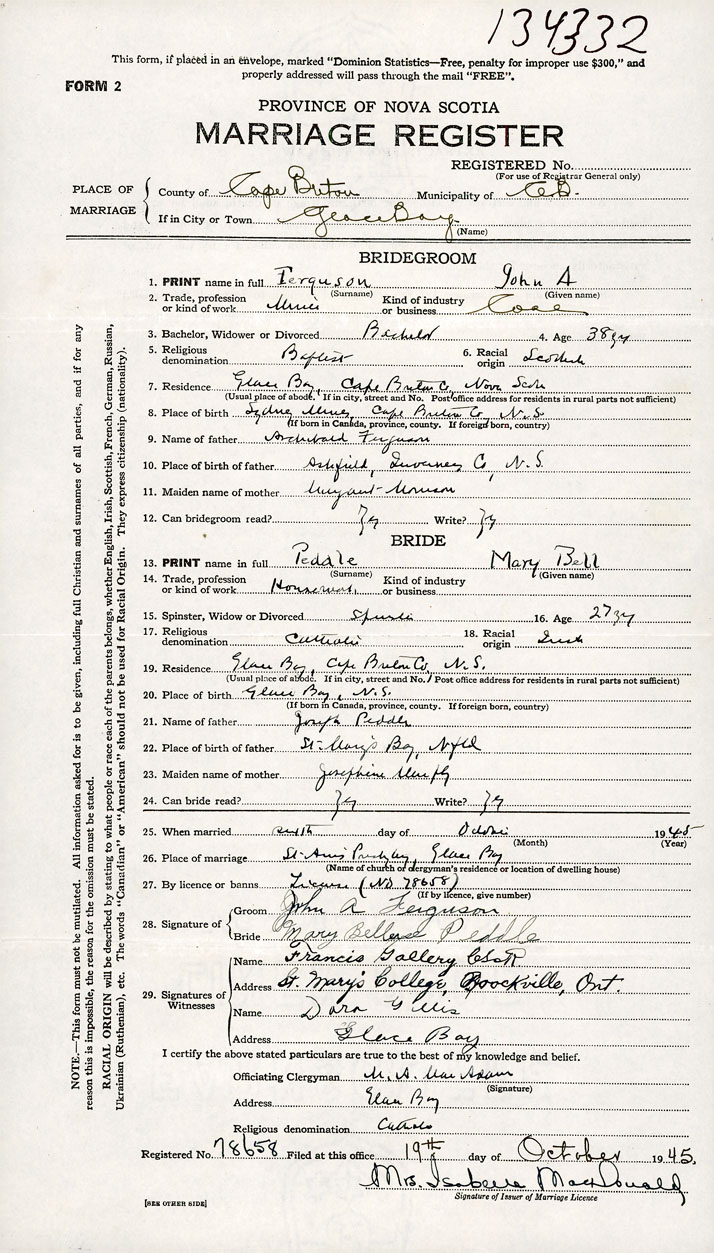 134332
This form, if placed in an envelope, marked "Dominion Statistics—Free, penalty for improper use $300," and
properly addressed will pass through the mail "FREE".
FORM 2
PROVINCE OF NOVA SCOTIA
MARRIAGE REGISTER
REGISTERED No.
(For use of Registrar General only)
PLACE OF MARRIAGE
County of Cape Breton Municipality of C.B.
If in City or Town Glace Bay
(Name)
BRIDEGROOM
1. PRINT name in full Ferguson John A
(Surname) (Given name)
2. Trade, profession or kind of work Miner Kind of industry or business Coal
3. Bachelor, Widower or Divorced Bachelor 4. Age 38
5. Religious denomination Baptist 6. Racial origin Scottish
7. Residence Glace Bay, Cape Breton Co, Nova Scotia
(Usual place of abode. If in city, street and No. Post office address for residents in rural parts not sufficient)
8. Place of birth Sydney Mines, Cape Breton Co, N.S.
(If born in Canada, province, county. If foreign born, country)
9. Name of father Archibald Ferguson
10. Place of birth of father Ashfield, Inverness Co, N.S.
11. Maiden name of mother Margaret Morrison
12. Can bridegroom read? Write?
BRIDE
13. PRINT name in full Peddle Mary Bell
(Surname) (Given name)
14. Trade, profession or kind of work Housework Kind of industry or business
15. Spinster, Widow or Divorced Spinster 16. Age 27
17. Religious denomination Catholic 18. Racial origin Irish
19. Residence Glace Bay, Cape Breton Co, N.S.
(Usual place of abode. If in city, street and No. Post office address for residents in rural parts not sufficient)
20. Place of birth Glace Bay, N.S.
(If born in Canada, province, county. If foreign born, country)
21. Name of father Joseph Peddle
22. Place of birth of father St. Mary's Bay, Nfld
23. Maiden name of mother Josephine Murphy
24. Can bride read? Write?
25. When married sixth day of October 1945
(Month) (Year)
26. Place of marriage St. Ann's Glace Bay
(Name of church or clergyman's residence or location of dwelling house)
27. By licence or banns License (No 78658)
(If by licence, give number)
28. Signature of
Groom John A Ferguson
Bride Mary Peddle
29. Signatures of Witnesses
Name Francis Gallery
Address St. Mary's College, Brockville, Ont.
Name Dora Gillis
Address Glace Bay
I certify the above stated particulars are true to the best of my knowledge and belief.
Officiating Clergyman M. A. MacAdam
(Signature)
Address Glace Bay
Religious denomination Catholic
Registered No. 78658 Filed at this office 19th day of October 1945.
Mrs. Isabella MacDonald
Signature of Issuer of Marriage Licence
[SEE OTHER SIDE]
NOTE.—This form must not be mutilated. All information asked for is to be given, including full Christian and surnames of all parties, and if for any
reason this is impossible, the reason for the omission must be stated.
RACIAL ORIGIN will be described by stating to what people or race each of the parents belongs, whether English, Irish, Scottish, French, German, Russian,
Ukrainian (Ruthenian), etc. The words "Canadian" or "American" should not be used for Racial Origin. They express citizenship (nationality).